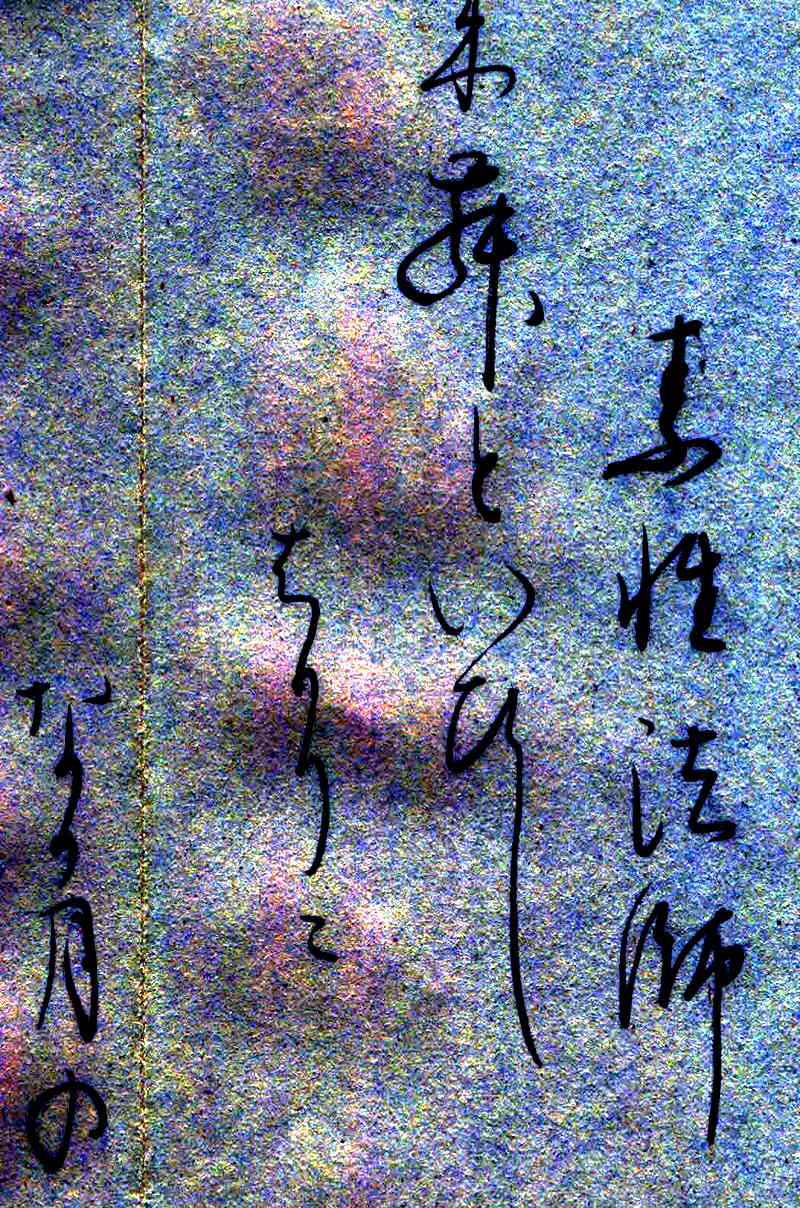 素性法師
来むといひし
はかりに
なか月の